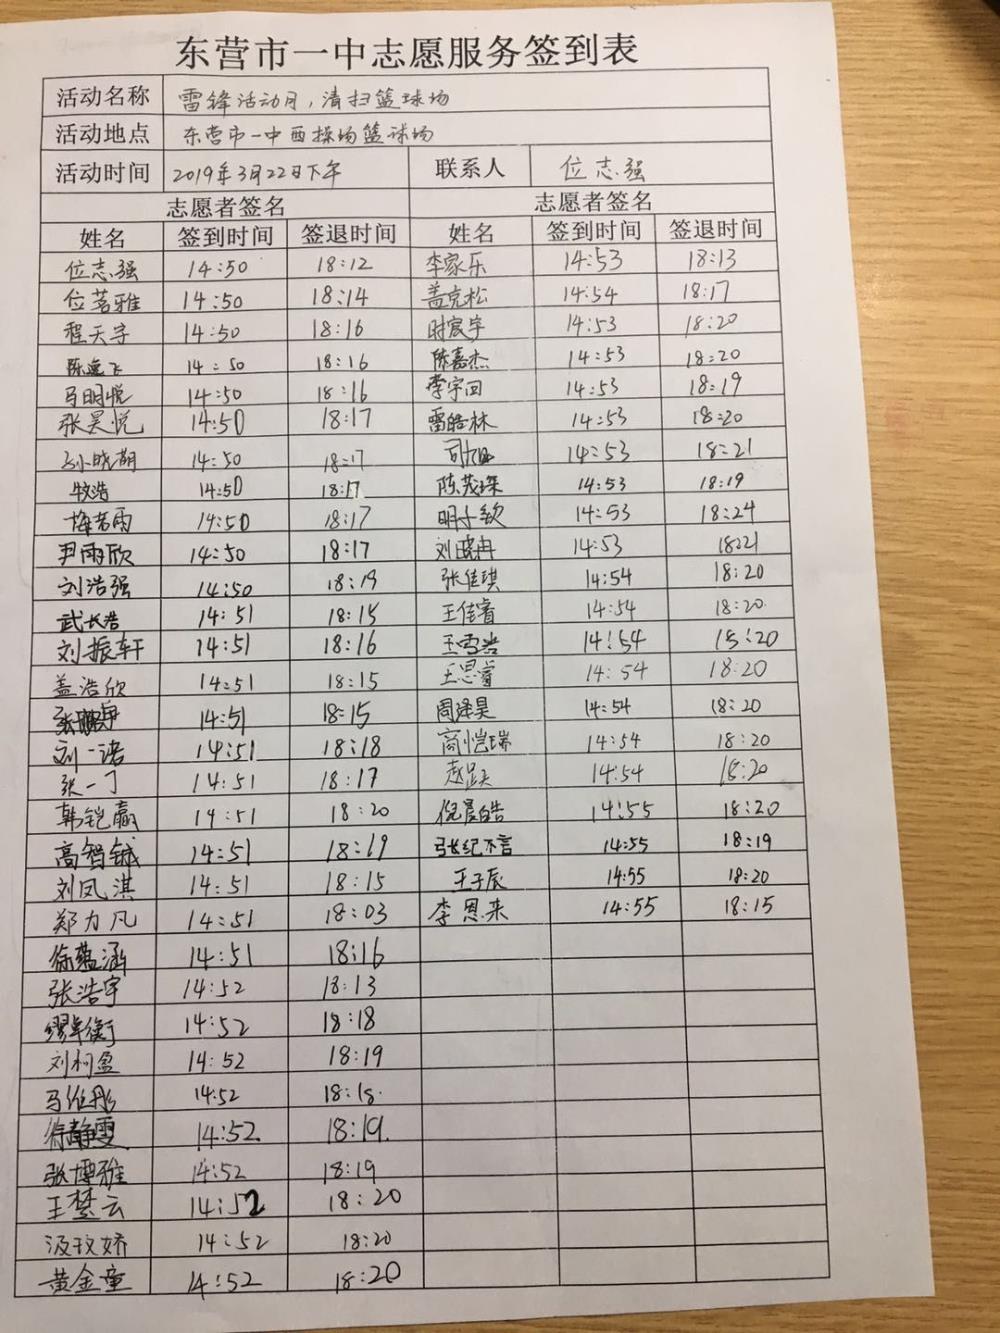 东营市一中志愿服务签到表
活动名称 雷锋活动月，清扫篮球场
活动地点 东营市一中西操场篮球场
活动时间 2019年3月22日下午 联系人 位志强
志愿者签名 志愿者签名
姓名 签到时间 签退时间 姓名 签到时间 签退时间
位志强 14:50 18:12 李家乐 14:53 18:13
位茗雅 14:50 18:14 盖克松 14:54 18:17
程天宇 14:50 18:16 时宸宇 14:53 18:20
陈逸飞 14:50 18:16 陈嘉杰 14:53 18:20
马明悦 14:50 18:16 李宇回 14:53 18:19
张昊悦 14:50 18:17 雷皓林 14:53 18:20
孙晓湖 14:50 18:17 14:53 18:21
牧浩 14:50 18:17 陈茂琛 14:53 18:19
梅若雨 14:50 18:17 明子欽 14:53 18:24
尹雨欣 14:50 18:17 刘晓冉 14:53 18:21
刘浩强 14:50 18:19 张佳琪 14:54 18:20
武长浩 14:51 18:15 王佳睿 14:54 18:20
刘振轩 14:51 18:16 王雪岩 14:54 15:20
盖浩欣 14:51 18:15 王思睿 14:54 18:20
14:51 18:15 周泽昊 14:54 18:20
刘一诺 14:51 18:18 商恺瑞 14:54 18:20
张一丁 14:51 18:17 14:54 15:20
韩铠赢 14:51 18:20 倪晨皓 14:55 18:20
高智铖 14:51 18:19 张纪不言 14:55 18:19
刘凤淇 14:51 18:15 王子辰 14:55 18:20
郑力凡 14:51 18:03 李恩来 14:55 18:15
徐蕴涵 14:51 18:16
张浩宇 14:52 18:13
14:52 18:18
刘柯盈 14:52 18:19
马维彤 14:52 18:18
徐静雯 14:52 18:19
张博雅 14:52 18:19
王楚云 14:52 18:20
汲玟娇 14:52 18:20
黄金童 14:52 18:20